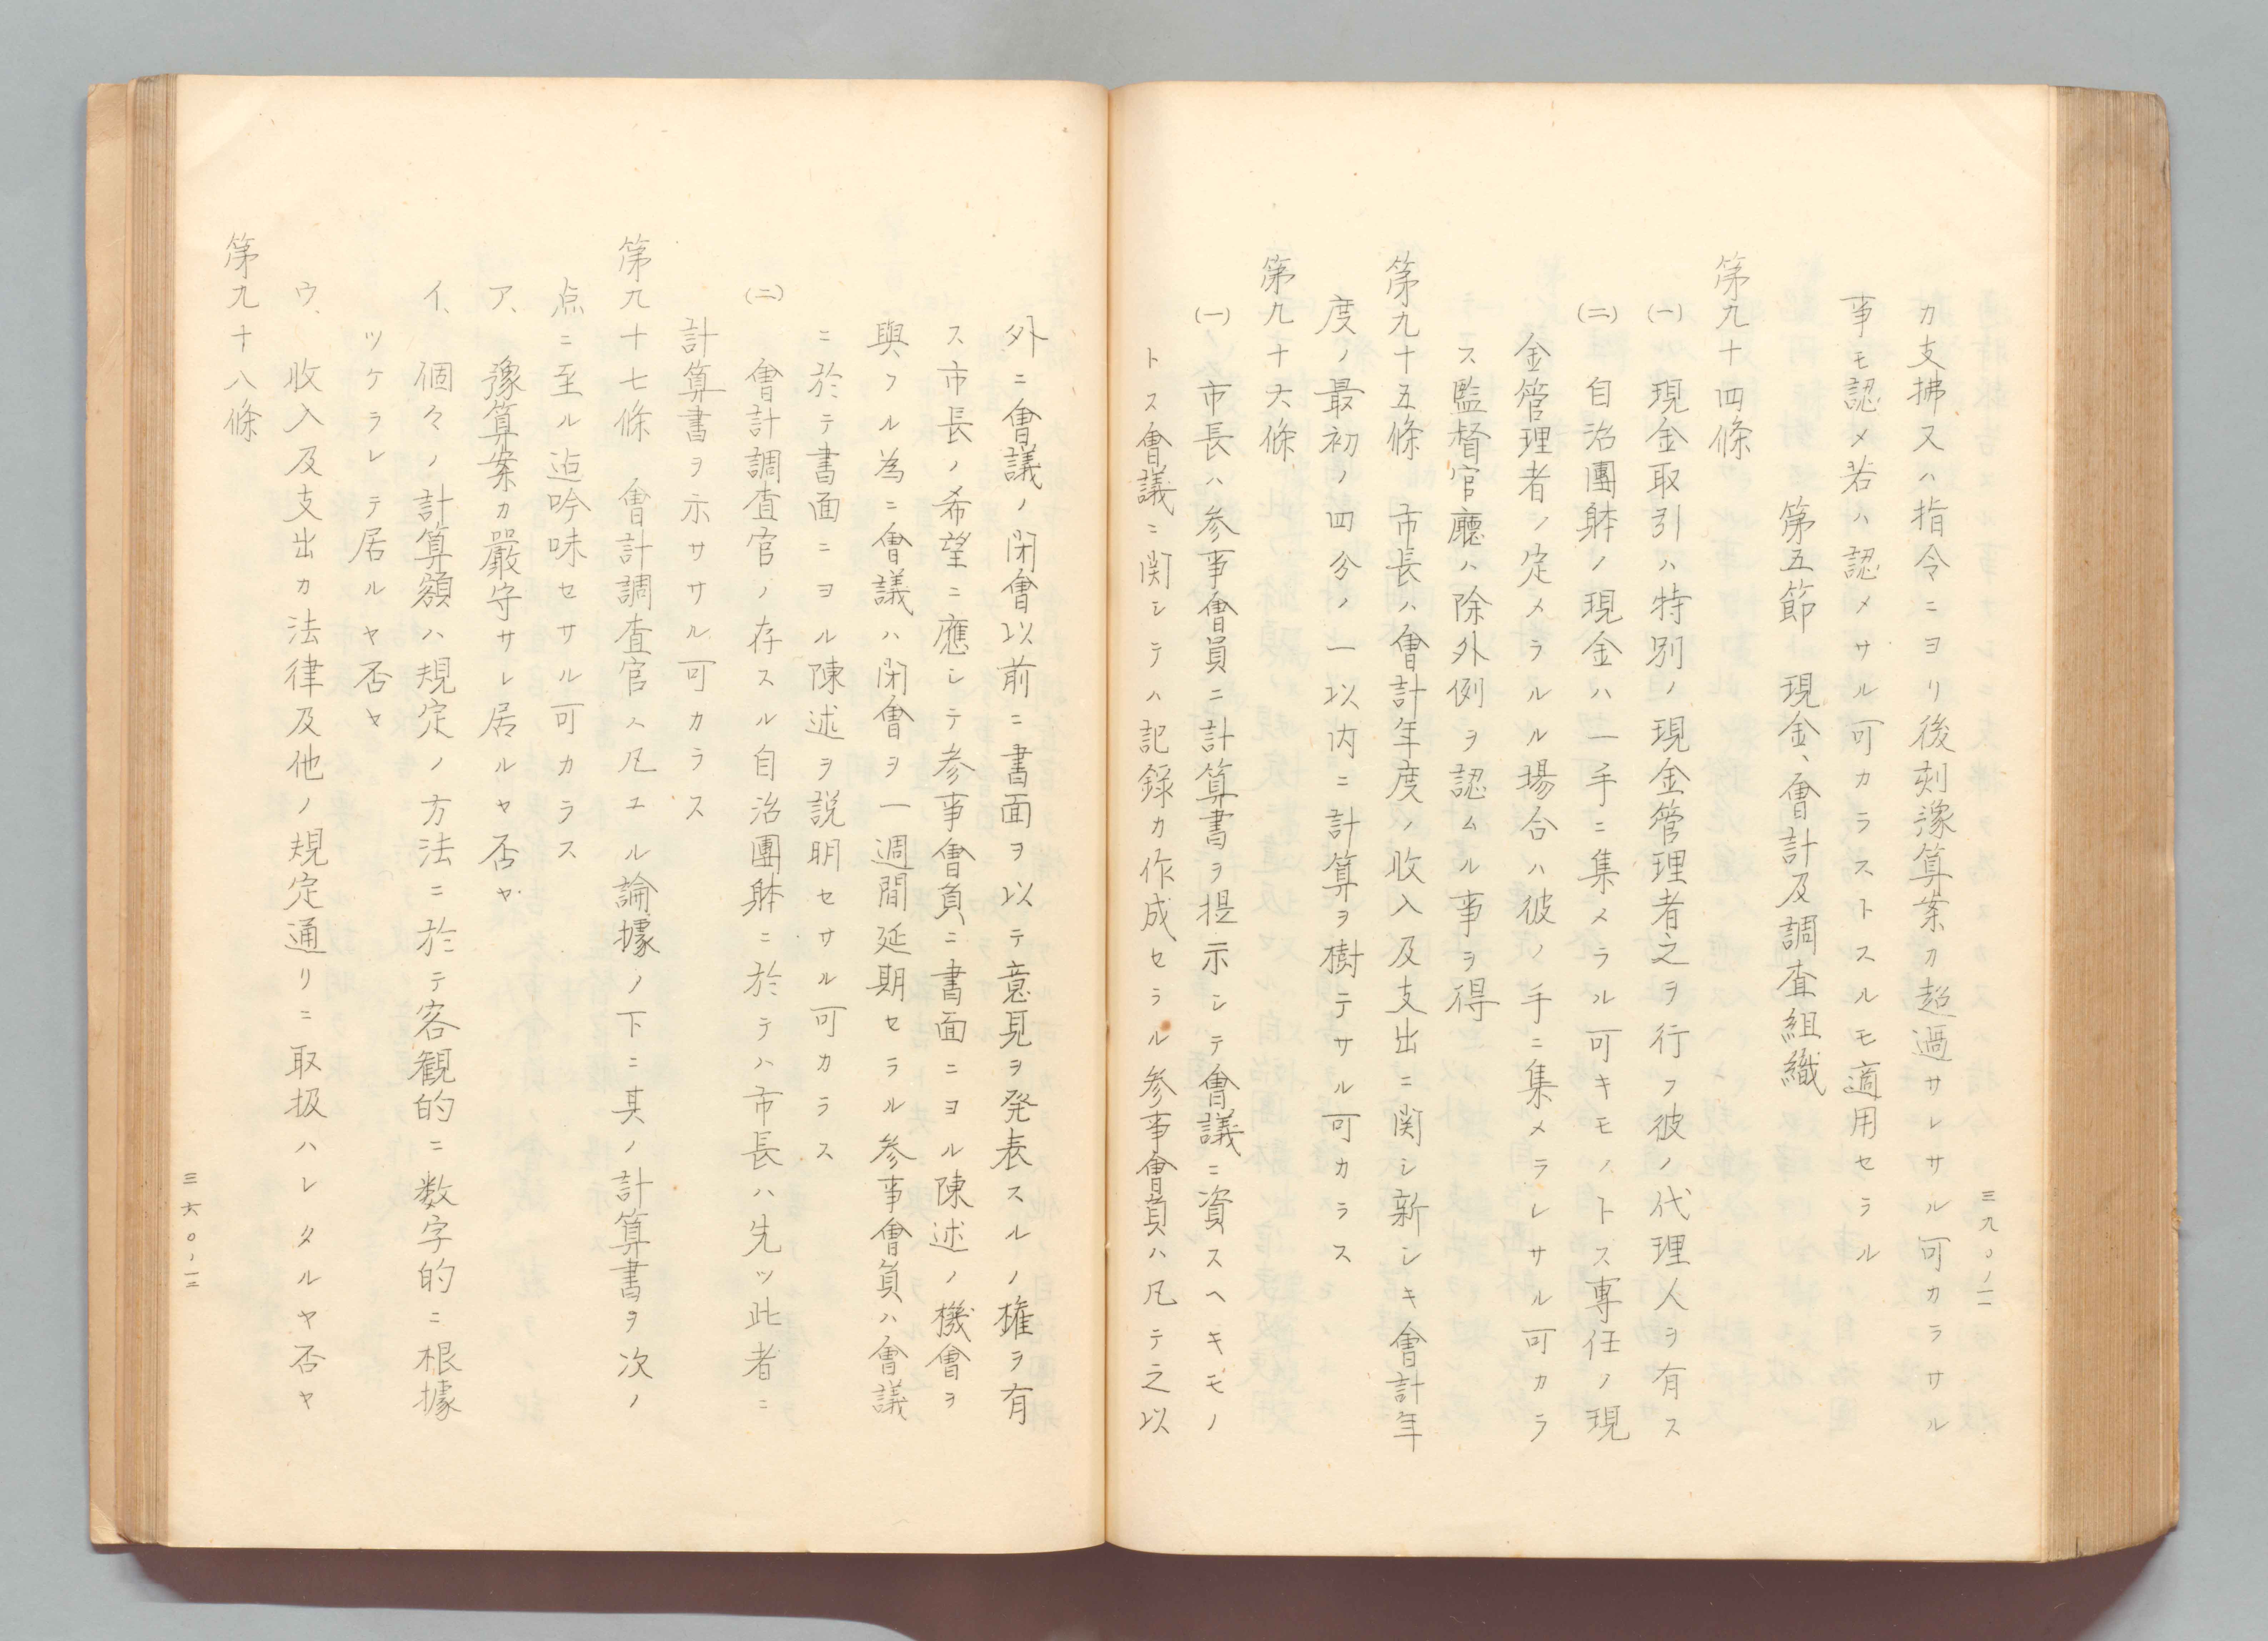 カ支拂又ハ指令ニヨリ後刻豫算案カ超過サレサル可カラサル
事モ認メ若ハ認メサル可カラストスルモ適用セラル
第五節　現金、會計及調査組織
第九十四條
(一)　現金取引ハ特別ノ現金管理者之ヲ行フ彼ノ代理人ヲ有ス
(二)　自治團躰ノ現金ハ一手ニ集メラル可キモノトス專任ノ現
金管理者ノ定メラルル場合ハ彼ノ手ニ集メラレサル可カラ
ス監督官廳ハ除外例ヲ認ムル事ヲ得
第九十五條　市長ハ會計年度ノ收入及支出ニ関シ新シキ會計年
度ノ最初ノ四分ノ一以内ニ計算ヲ樹テサル可カラス
第九十六條
(一)　市長ハ参事會員ニ計算書ヲ提示シテ會議ニ資スヘキモノ
トス會議ニ関シテハ記録カ作成セラル参事會員ハ凡テ之以
三九〇ノ一一
外ニ會議ノ閉會以前ニ書面ヲ以テ意見ヲ発表スルノ権ヲ有
ス市長ノ希望ニ應シテ参事會員ニ書面ニヨル陳述ノ機會ヲ
與フル為ニ會議ハ閉會ヲ一週間延期セラル参事會員ハ會議
ニ於テ書面ニヨル陳述ヲ説明セサル可カラス
(二)　會計調査官ノ存スル自治團躰ニ於テハ市長ハ先ツ此者ニ
計算書ヲ示ササル可カラス
第九十七條　會計調査官ハ凡ユル論據ノ下ニ其ノ計算書ヲ次ノ
点ニ至ル迠吟味セサル可カラス
ア、　豫算案カ嚴守サレ居ルヤ否ヤ
イ、　個々ノ計算額ハ規定ノ方法ニ於テ客観的ニ数字的ニ根據
ツケラレテ居ルヤ否ヤ
ウ、　收入及支出カ法律及他ノ規定通リニ取扱ハレタルヤ否ヤ
第九十八條
三六〇ノ一二